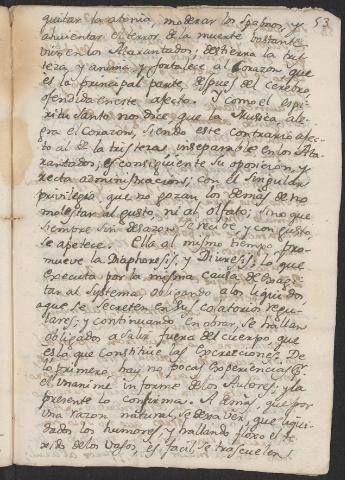 quitar la atonia, moderar los spasmos, y
53
ahuientar el terror de la muerte bastante
vivo en los Atarantados; destierra la tris
teza, y anima, y fortalece al Corazon que
es la principal parte, despues del cerebro
ofendida en este afecto. Y como el espi
ritu Santo nos dice, que la Musica ale
gra el Corazon, siendo este contrario afec
to al de la tristeza inseparable en los Ata
rantados; es consiguiente su oposicion, y
recta administracion; con el singular
privilegio, que no gozan los demas, de no
molestar al gusto, ni al olfato; sino que
siempre sin desazon se recibe, y con gusto
se apetece. Ella al mismo tiempo pro
mueve la Diaphoresis, y Diuresis; lo que
executa por la misma causa de exal
tar al systema, obligando a los liquidos
a que se secreten en sus colatorios regu
lares; y continuando en obrar, se hallan
obligados a salir fuera del cuerpo que
es la que constitue las Excreciones. De
lo primero, hay no pocas experiencias
el unanime informe de los Autores; y la
presente lo confirma. A demas, que por
una razon natural se deva ver, que liqui
dados los humores, y hallando floxo el te
xido de los vasos, es facil se trascuelen